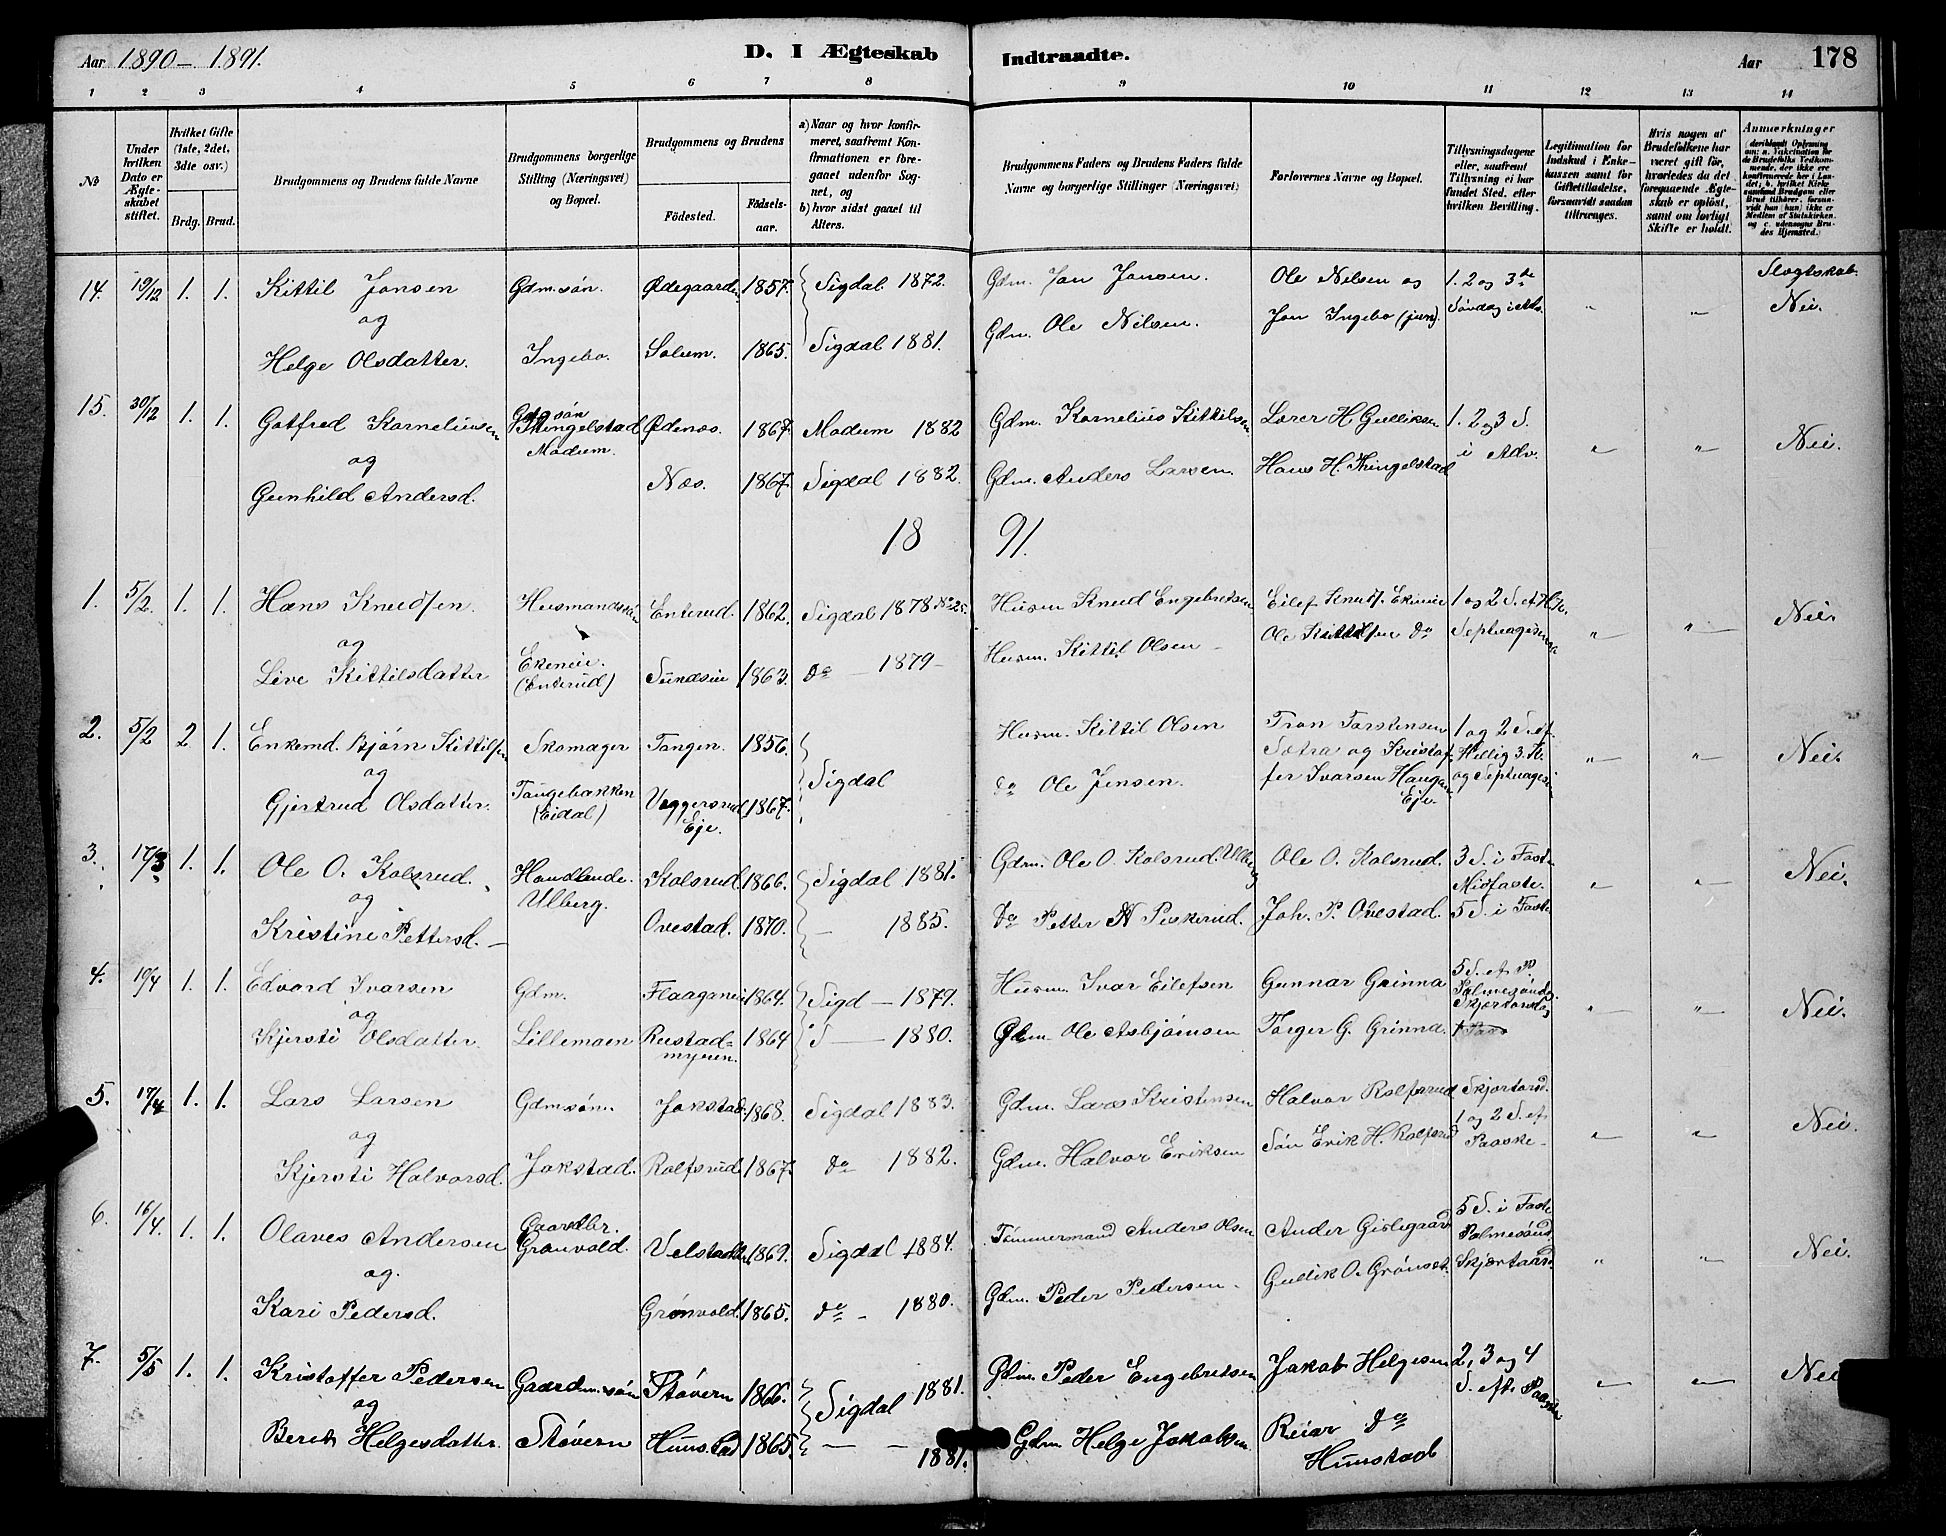 Aar 1890 – 1891.
D. I Ægteskab Indtraadte.
Aar 178
1 2 3 4 5 6 7 8 9 10 11 12 13 14
№
Under hvilken Dato er Ægteskabet stiftet.
Hvilket Gifte (1ste, 2det, 3die osv.)
Brdg. Brud.
Brudgommens og Brudens fulde Navne
Brudgommens borgerlige Stilling (Næringsvei) og Bopæl.
Brudgommens og Brudens
Fødested.
Fødselsaar.
a) Naar og hvor konfirmeret, saafremt Konfirmationen er foregaaet udenfor Sognet, og
b) hvor sidst gaaet til Alters.
Brudgommens Faders og Brudens Faders fulde Navne og borgerlige Stillinger (Næringsvei)
Forlovernes Navne og Bopæl.
Tillysningsdagene eller, saafremt Tillysning ei har fundet Sted, efter hvilken Bevilling.
Legitimation for Indskud i Enkekassen samt for Giftetilladelse, forsaavidt saadan tiltrænges.
Hvis nogen af Brudefolkene har været gift før, hvorledes da det foregaaende Ægteskab er opløst, samt om lovligt Skifte er holdt.
Anmærkninger
14. 19/12 1. 1. Kittil Jonsen Gdm.søn. Ødegaarden 1857. Sigdal 1872. Gdm. Jon Jonsen. Ole Nilsen og 1. 2 og 3de Slægtskab.
og Jon Ingebo (jun). Søndag i Adv. " " Nei.
Helge Olsdatter. Ingebo. Solum. 1865. Sigdal 1881. Gdm. Ole Nilsen.
15. 30/12 1. 1. Gotfred Korneliusen Gdm.søn Thingelstad Modum. Ødenæs. 1867. Modum 1882 Gdm. Kornelius Kittilsen Lærer H Gulliksen 1. 2 og 3 S. i Adv. " " Nei.
og
Gunhild Andersd. Næs. 1867. Sigdal 1882. Gdm. Anders Larsen. Hans H. Thingelstad
1891.
1. 5/2. 1. 1. Hans Knudsen. Husmandssøn Enterud. 1862. Sigdal 1878 Husm Knud Engebretsen Eilef Knuds. Ekeneie 1 og 2 S. ef. H.3.K. " " Nei.
og Ole Kittilsen do Septuagesima
Live Kittilsdatter Ekeneie. (Enterud) 1863. do – 1879 – Husm. Kittil Olsen –
2. 5/2 2 1. Enkemd. Bjørn Kittilsen Skomager Tangen. 1856. Sigdal Husm. Kittil Olsen Tron Torstensen 1 og 2 S. ef.
og Sætra og Kristoffer Ivarsen Haugan Eje. Hellig 3. K. og Septuages. " " Nei.
Gjertrud Olsdatter. Tangebakken (Eidal) Veggersrud Eje. 1867. do Ole Jensen.
3. 17/3 1. 1. Ole O. Kolsrud. Handlende. Ulberg. Kolsrud 1866. Sigdal 1881. Gdm. Ole O. Kolsrud. Ulberg Ole O. Kolsrud. 3 S. i Fast. Midfaste. " " Nei.
og
Kristine Pettersd. – Ovestad. 1870. – 1885. do Petter N Piskerud. Joh. P. Ovestad. 5 S. i Faste
4. 10/4 1. 1. Edvard Ivarsen Gdm. Flaaganeie 1864. Sigd – 1879. Husm. Ivar Eilefsen Gunnar Grinna Palmesøndag. Skjærtorsdag " " Nei.
og
Kjersti Olsdatter. Lillemoen Rustadmyren. 1864 S – 1880. Gdm. Ole Asbjørnsen Torger G. Grinna.
5. 17/4 1. 1. Lars Larsen Gdm.søn. Jokstad. 1868. Sigdal 1883. Gdm. Lars Kristensen Halvor Rolfsrud Skjærtorsd. 1 og 2 S. ef. Paaske – " " Nei.
og
Kjersti Halvorsd. Jokstad. Rolfsrud 1867. do 1882. Gdm. Halvor Eriksen Søn Erik H. Rolfsrud
6. 16/4 1. 1. Olaves Andersen Gaardbr. Grønvold. 1869. Sigdal 1884. Tømmermand Anders Olsen Ander Gislegaard 5 S. i Faste Palmesønd. Skjærtorsd. " " Nei.
og.
Kari Pedersd. Grønvold. 1865. do – 1880. Gdm. Peder Pedersen – Gullik O. Grønset.
7. 5/5 1. 1. Kristoffer Pedersen Gaardm.søn Støvern 1866. Sigdal 1881. Gdm Peder Engebretsen Jakob Helgesen 2, 3 og 4 S. eft. Paaske " " Nei
og
Berit Helgesdatter. Støvern Hunstad 1865. – 1881. Gdm. Helge Jakobsen Reiar do Hunstad